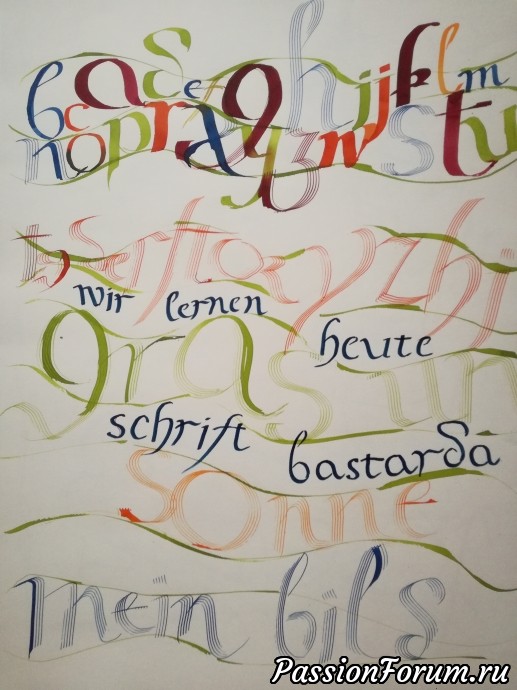 b a d e g h i j k l m
n o p r
wir lernen
heute
gras un
schrift
bastarda
sonne
mein bild
PassionForum.ru